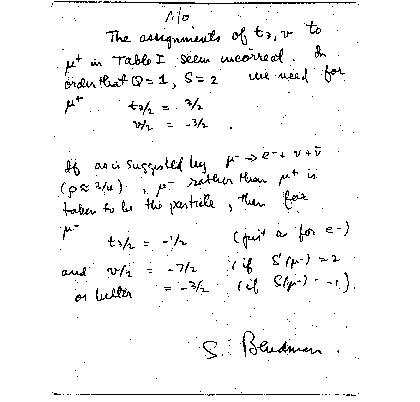 The assignments of t3, v to
μ+ in Table I seem incorrect. In
order that Q=1, S=2 we need for
μ+ t3/2 = 3/2
v/2 = -3/2 .
If as is suggested by μ- → e- + ν + ν̄
(ρ ≈ 3/4) , μ- rather than μ+ is
taken to be the particle, then for
μ-
t3/2 = -1/2 (just as for e-)
and v/2 = -7/2 (if S(μ-) = 2
or better = -3/2 (if S(μ-) = -1).
S. Bludman.